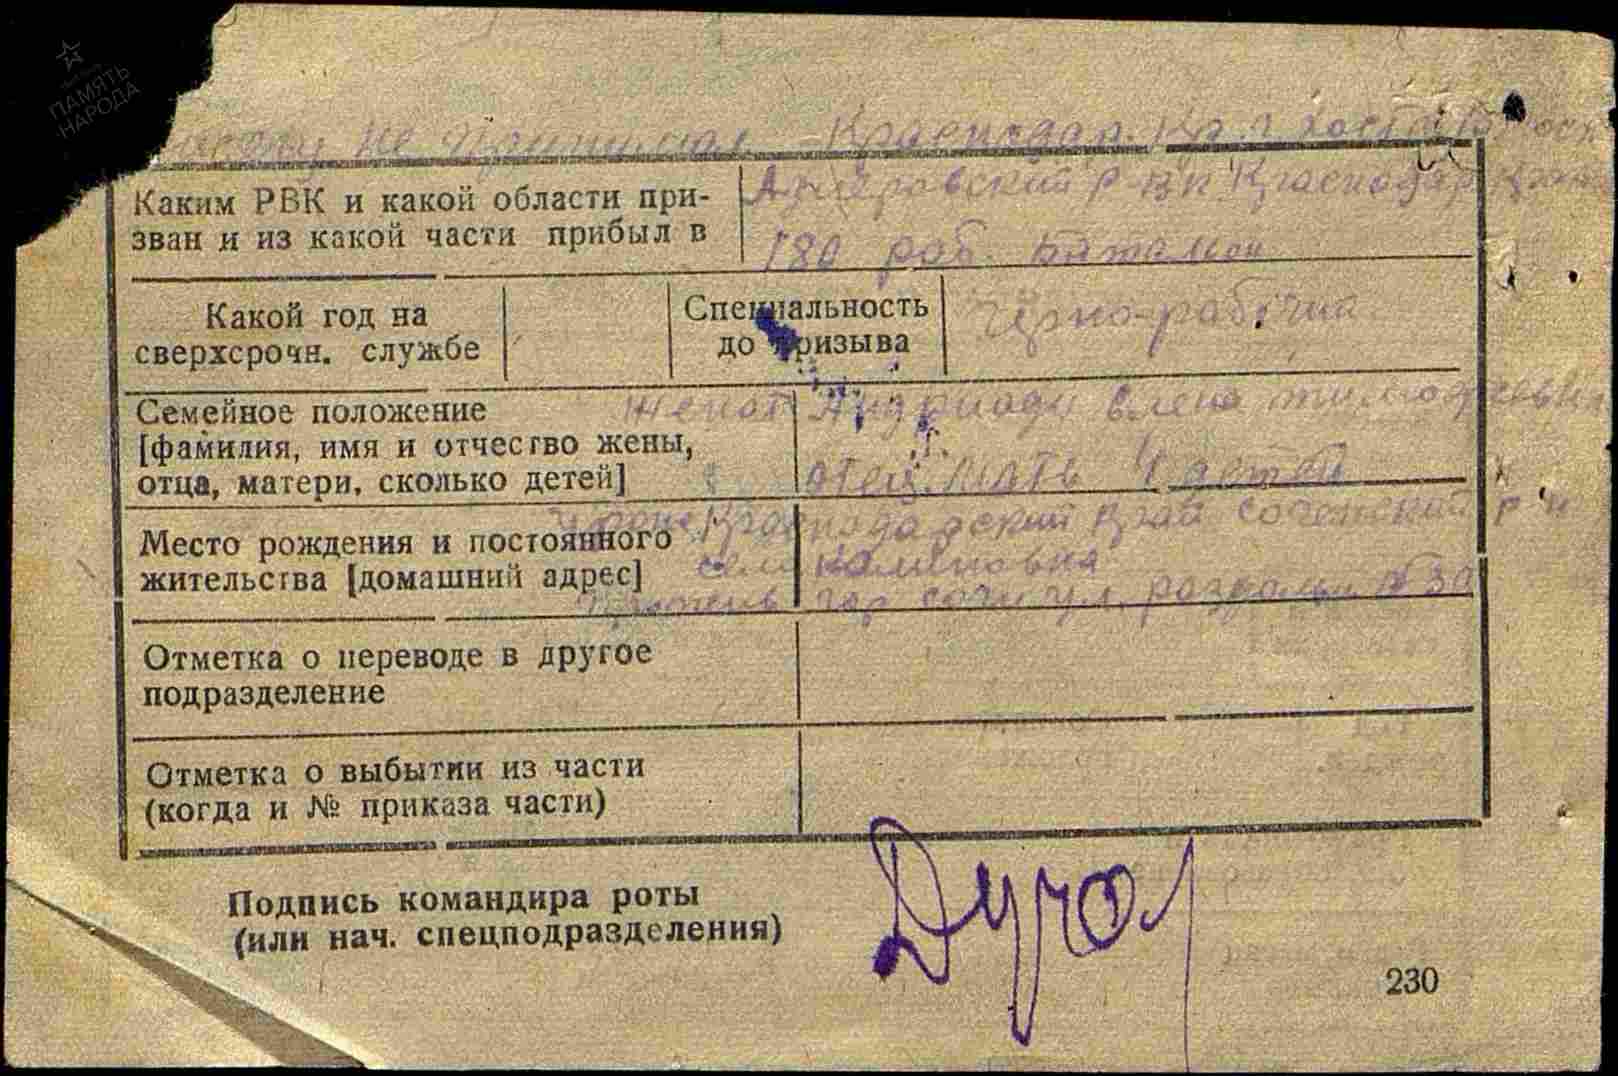 ПАМЯТЬ
НАРОДА
не принимал Краснодар.
Каким РВК и какой области при-
зван и из какой части прибыл в
р-вк Краснодар
180 раб. батальон
Какой год на
сверхсрочн. службе
Специальность
до призыва
Черно-рабочий
Семейное положение
[фамилия, имя и отчество жены,
отца, матери, сколько детей]
женат Елена
отец. мать 4 детей
Место рождения и постоянного
жительства [домашний адрес]
Краснодарский край р-н
село
гор Сочи ул.
Отметка о переводе в другое
подразделение
Отметка о выбытии из части
(когда и № приказа части)
Подпись командира роты
(или нач. спецподразделения)
230